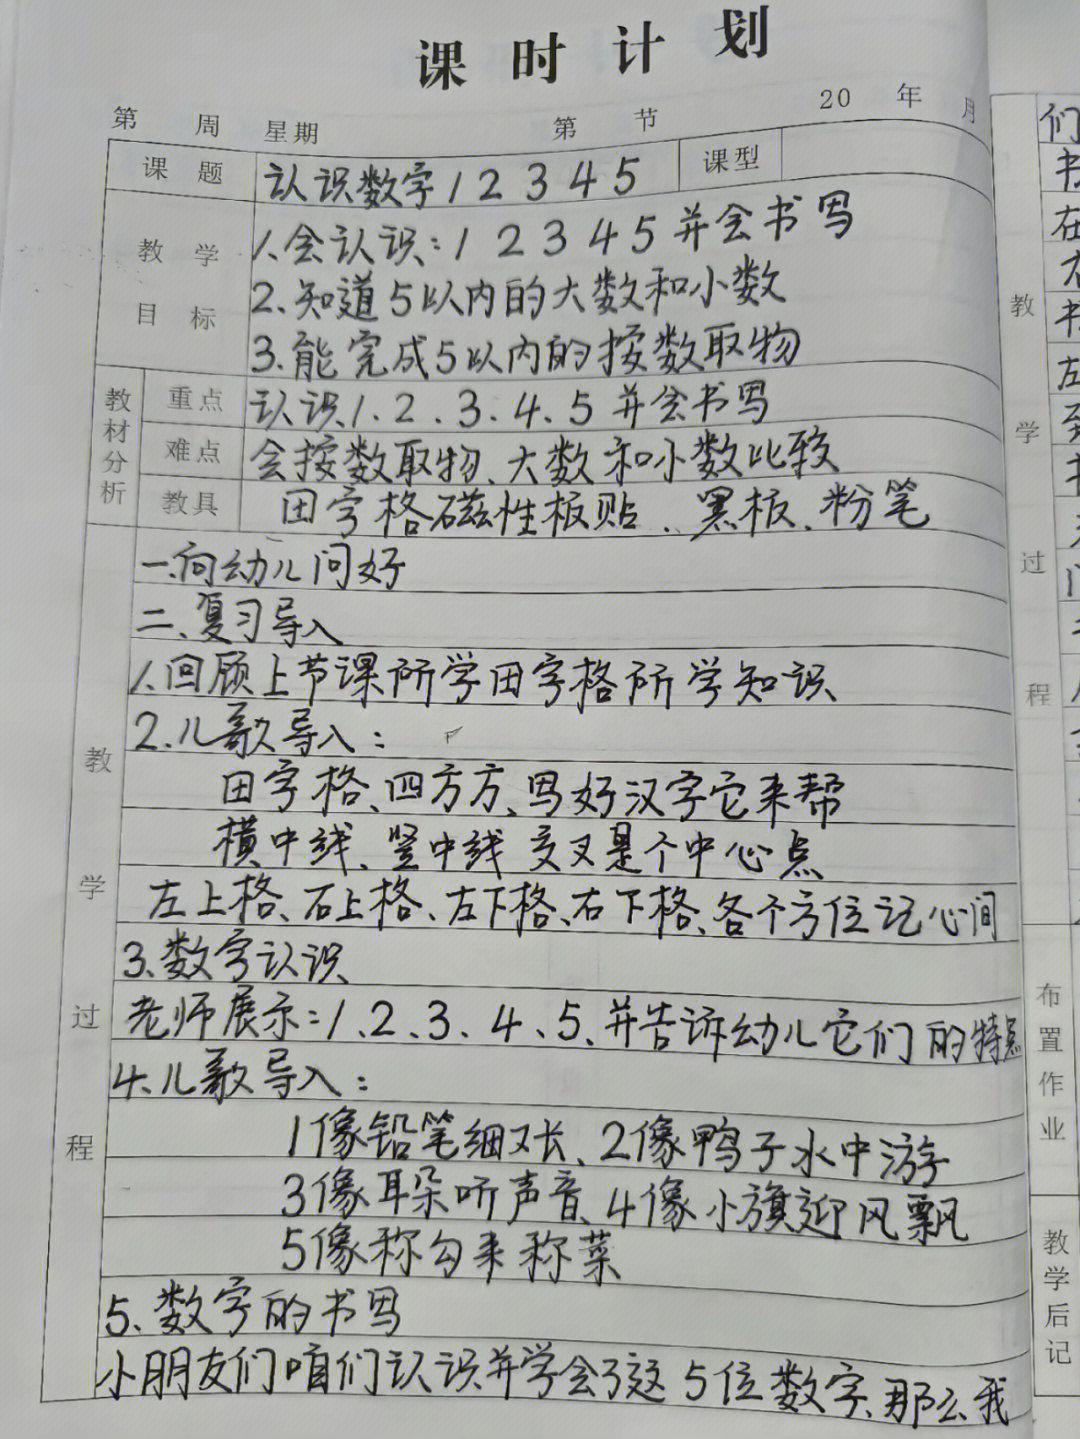 课时计划
第 周 星期 第 节 20 年 月
课题 认识数字1 2 3 4 5 课型
教学目标
1.会认识:1 2 3 4 5并会书写
2.知道5以内的大数和小数
3.能完成5以内的按数取物
教材分析
重点 认识1.2.3.4.5并会书写
难点 会按数取物、大数和小数比较
教具 田字格磁性板贴、黑板、粉笔
教学过程
一.向幼儿问好
二、复习导入
1.回顾上节课所学田字格所学知识
2.儿歌导入:
田字格、四方方、写好汉字它来帮
横中线、竖中线 交叉是个中心点
左上格、右上格、左下格、右下格、各个方位记心间
3、数字认识
老师展示:1、2、3、4、5、并告诉幼儿它们的特点
4.儿歌导入:
1像铅笔细又长、2像鸭子水中游
3像耳朵听声音、4像小旗迎风飘
5像称勾来称菜
5.数字的书写
小朋友们咱们认识并学会了这5位数字、那么我
教学过程
们
书
在
书
左
布置作业
教学后记